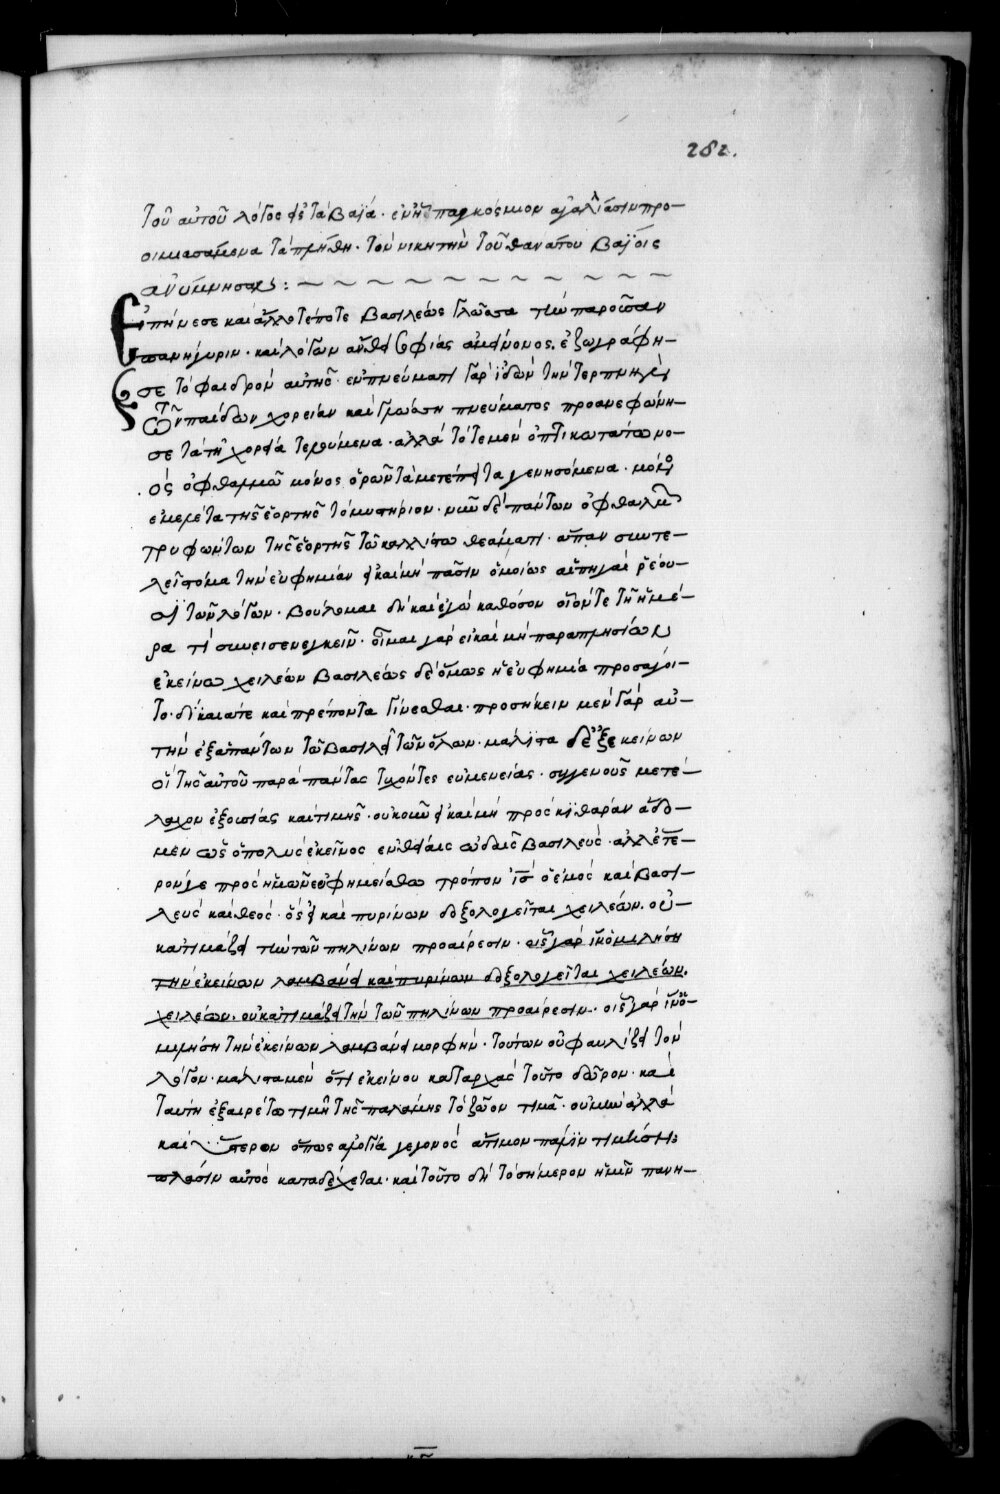 282.
Τοῦ αὐτοῦ λόγος εἰς τὰ βαϊά· παγκόσμιον προ–
τὰ πλήθη· τὸν νικητὴν τοῦ θανάτου βαΐοις
ἀνύμνησαν:
Ἐπήνεσε καὶ ἄλλοτέ ποτε βασιλέως γλῶσσα τὴν παροῦσαν
πανήγυριν· καὶ λόγων ἄνθει σοφίας ἀμείνονος. ἐζωγράφη–
σε τὸ φαιδρὸν αὐτῆς· ἐν πνεύματι γὰρ ἰδὼν τὴν τερπνὴν
τῶν παίδων χορείαν καὶ γλώσση πνεύματος προανεφώνη–
σε τὰ τῆ τελούμενα· ἀλλὰ τότε μὲν
ὀφθαλμῶ μόνος ὁρῶν τὰ γενησόμενα· μόνος
ἐμελέτα τῆς ἑορτῆς τὸ μυστήριον· νῦν δὲ πάντων ὀφθαλμῶν
τρυφώντων τῆς ἑορτῆς τῶ καλλίστω θεάματι· ἅπαν συντε–
λεῖ στόμα τὴν εὐφημίαν εἰ καὶ μὴ πᾶσιν ὁμοίως αἱ πηγαὶ ῥέου–
σι τῶν λόγων· βούλομαι δὴ καὶ ἐγὼ καθόσον οἷόν τε τῆ ἡμέ–
ρα τί συνεισενεγκεῖν· οἶμαι γὰρ εἰ καὶ μὴ παραπλησίων
ἐκείνω χειλέων βασιλέως δὲ ὅμως ἡ εὐφημία προσαγοι–
το· δίκαιά τε καὶ πρέποντα γίνεσθαι· προσήκειν μὲν γὰρ αὐ–
τὴν ἐξ ἁπάντων τῶ βασιλεῖ τῶν ὅλων· μάλιστα δὲ ἐξ ἐκείνων
οἳ τῆς αὐτοῦ παρὰ πάντας τυχόντες εὐμενείας· συγγενοῦς μετέ–
λαχον ἐξουσίας καὶ τιμῆς· οὐκοῦν εἰ καὶ μὴ πρὸς κιθάραν ἄδο–
μεν ὡς ὁ πολὺς ἐκεῖνος ἐν ὠδαῖς βασιλεύς· ἀλλ' ἕτε–
ρόν γε πρὸς ἡμῶν εὐφημείσθω τρόπον ὁ ἐμὸς καὶ βασι–
λεὺς καὶ θεός· ὃς εἰ καὶ πυρίνων δοξολογεῖται χειλέων. οὐ–
κ ἀτιμάζει τὴν τῶν πηλίνων προαίρεσιν· οἷς γὰρ
τὴν ἐκείνων λαμβάνει καὶ πυρίνων δοξολογεῖται χειλέων.
χειλέων· οὐκ ἀτιμάζει τὴν τῶν πηλίνων προαίρεσιν· οἷς γὰρ
τὴν ἐκείνων λαμβάνει μορφήν· τούτων οὐ φαυλίζει τὸν
λόγον· μάλιστα μὲν ὅτι ἐκείνου καταρχὰς τοῦτο δῶρον· καὶ
ταύτη ἐξαιρέτω τιμῆ τῆς παλάμης τὸ ζῶον τιμᾶ· οὐ μὴν ἀλλὰ
καὶ ὕστερον ὅπως γεγονὸς ἄτιμον πάλιν
αὐτὸς καταδέχεται· καὶ τοῦτο δὴ τὸ σήμερον ἡμῖν πανη–